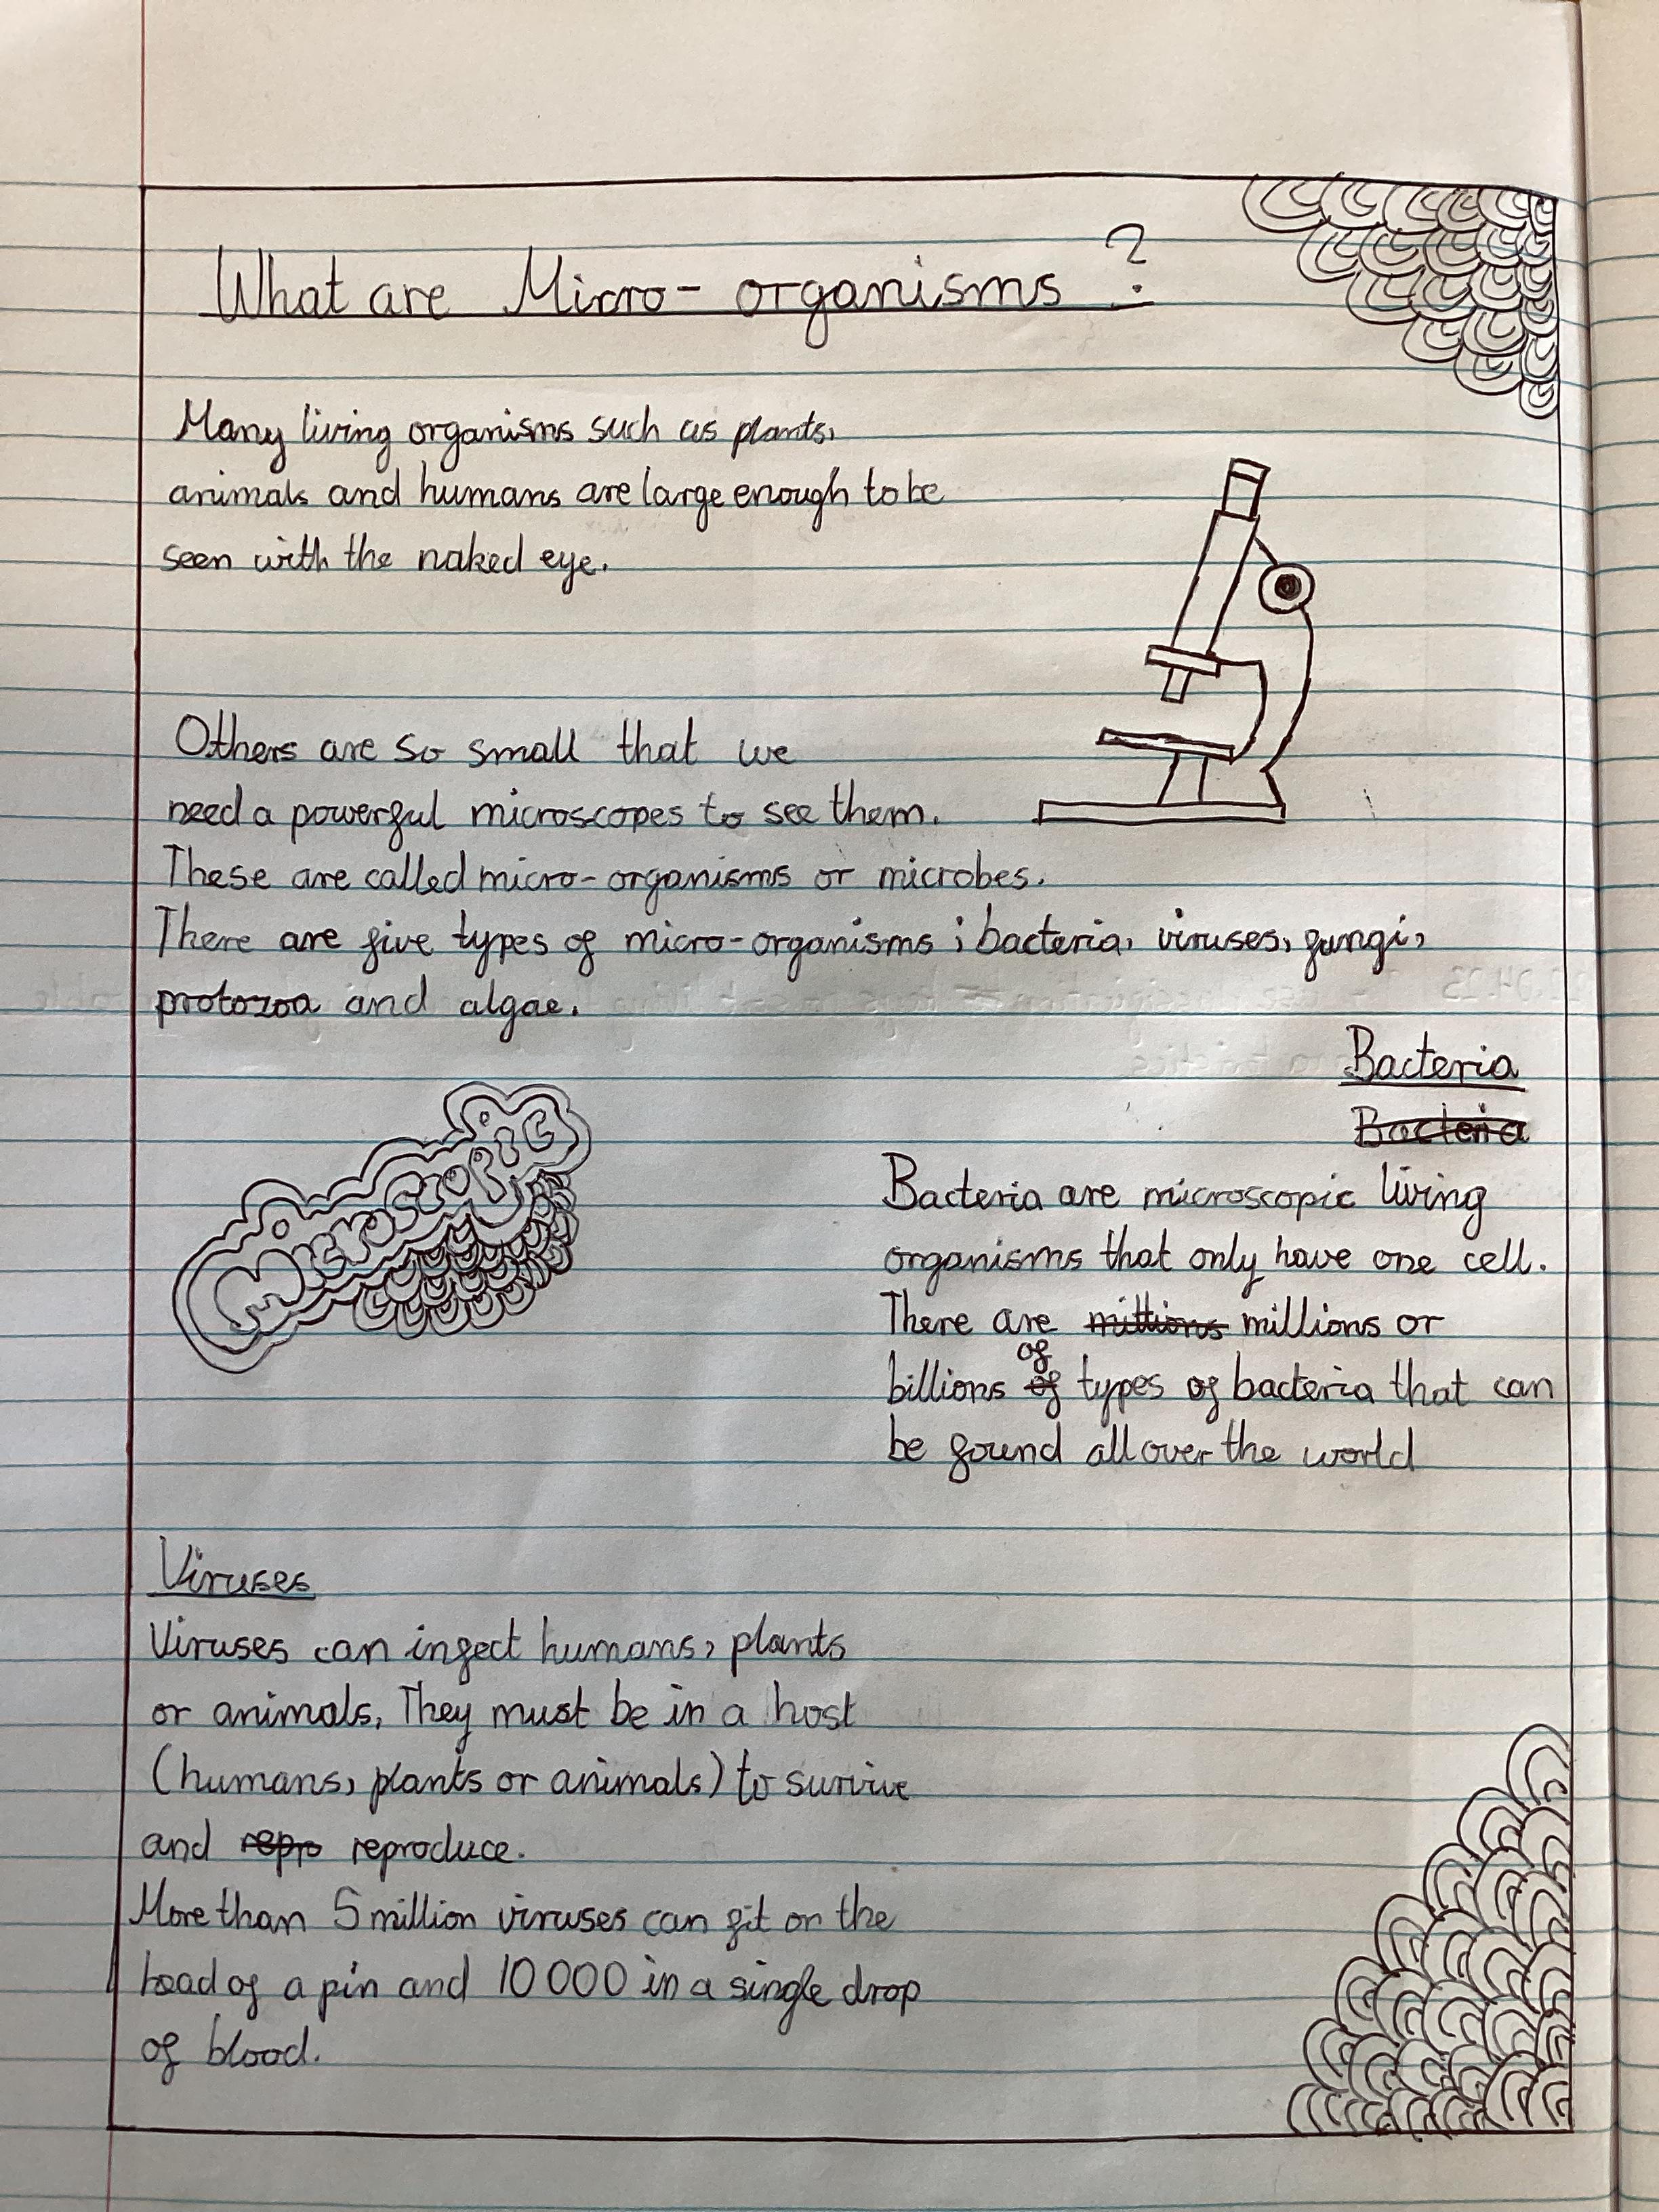 What are Micro- organisms ?
Many living organisms such as plants,
animals and humans are large enough to be
seen with the naked eye.
Others are so small that we
need a powerful microscopes to see them.
These are called micro-organisms or microbes.
There are five types of micro-organisms ; bacteria, viruses, fungi,
protozoa and algae.
Bacteria
Bacteria
Microscopic
Bacteria are microscopic living
organisms that only have one cell.
There are millions millions or
of
billions of types of bacteria that can
be found all over the world
Viruses
Viruses can infect humans, plants
or animals. They must be in a host
(humans, plants or animals) to survive
and repro reproduce.
More than 5 million viruses can fit on the
head of a pin and 10 000 in a single drop
of blood.